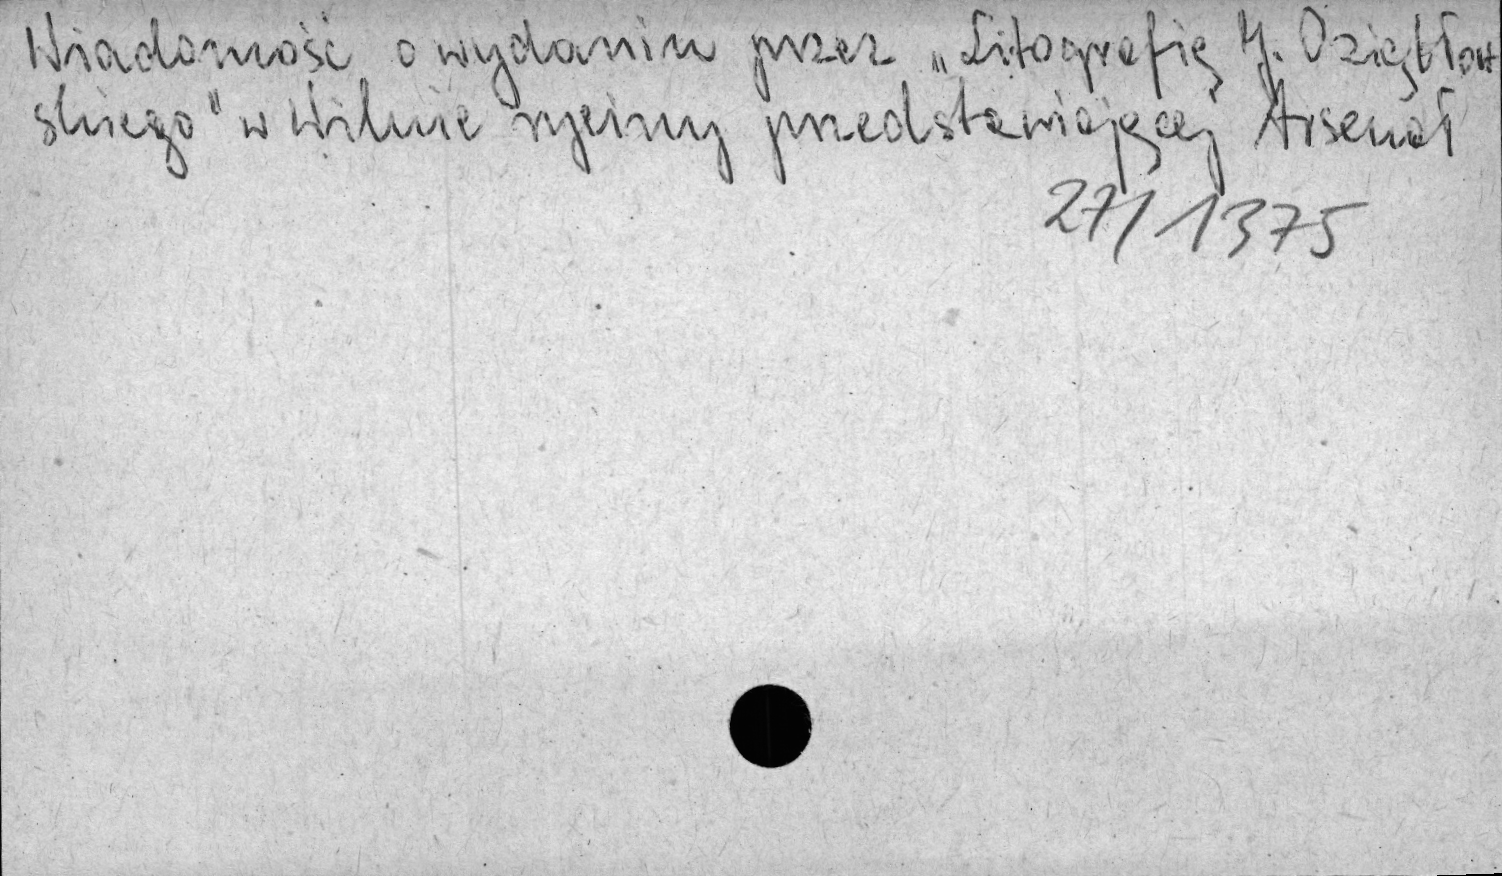 Wiadomość o wydaniu przez „Litografię J. Oziębłow
skiego" w Wilnie ryciny przedstawiającej Arsenał
27/1375